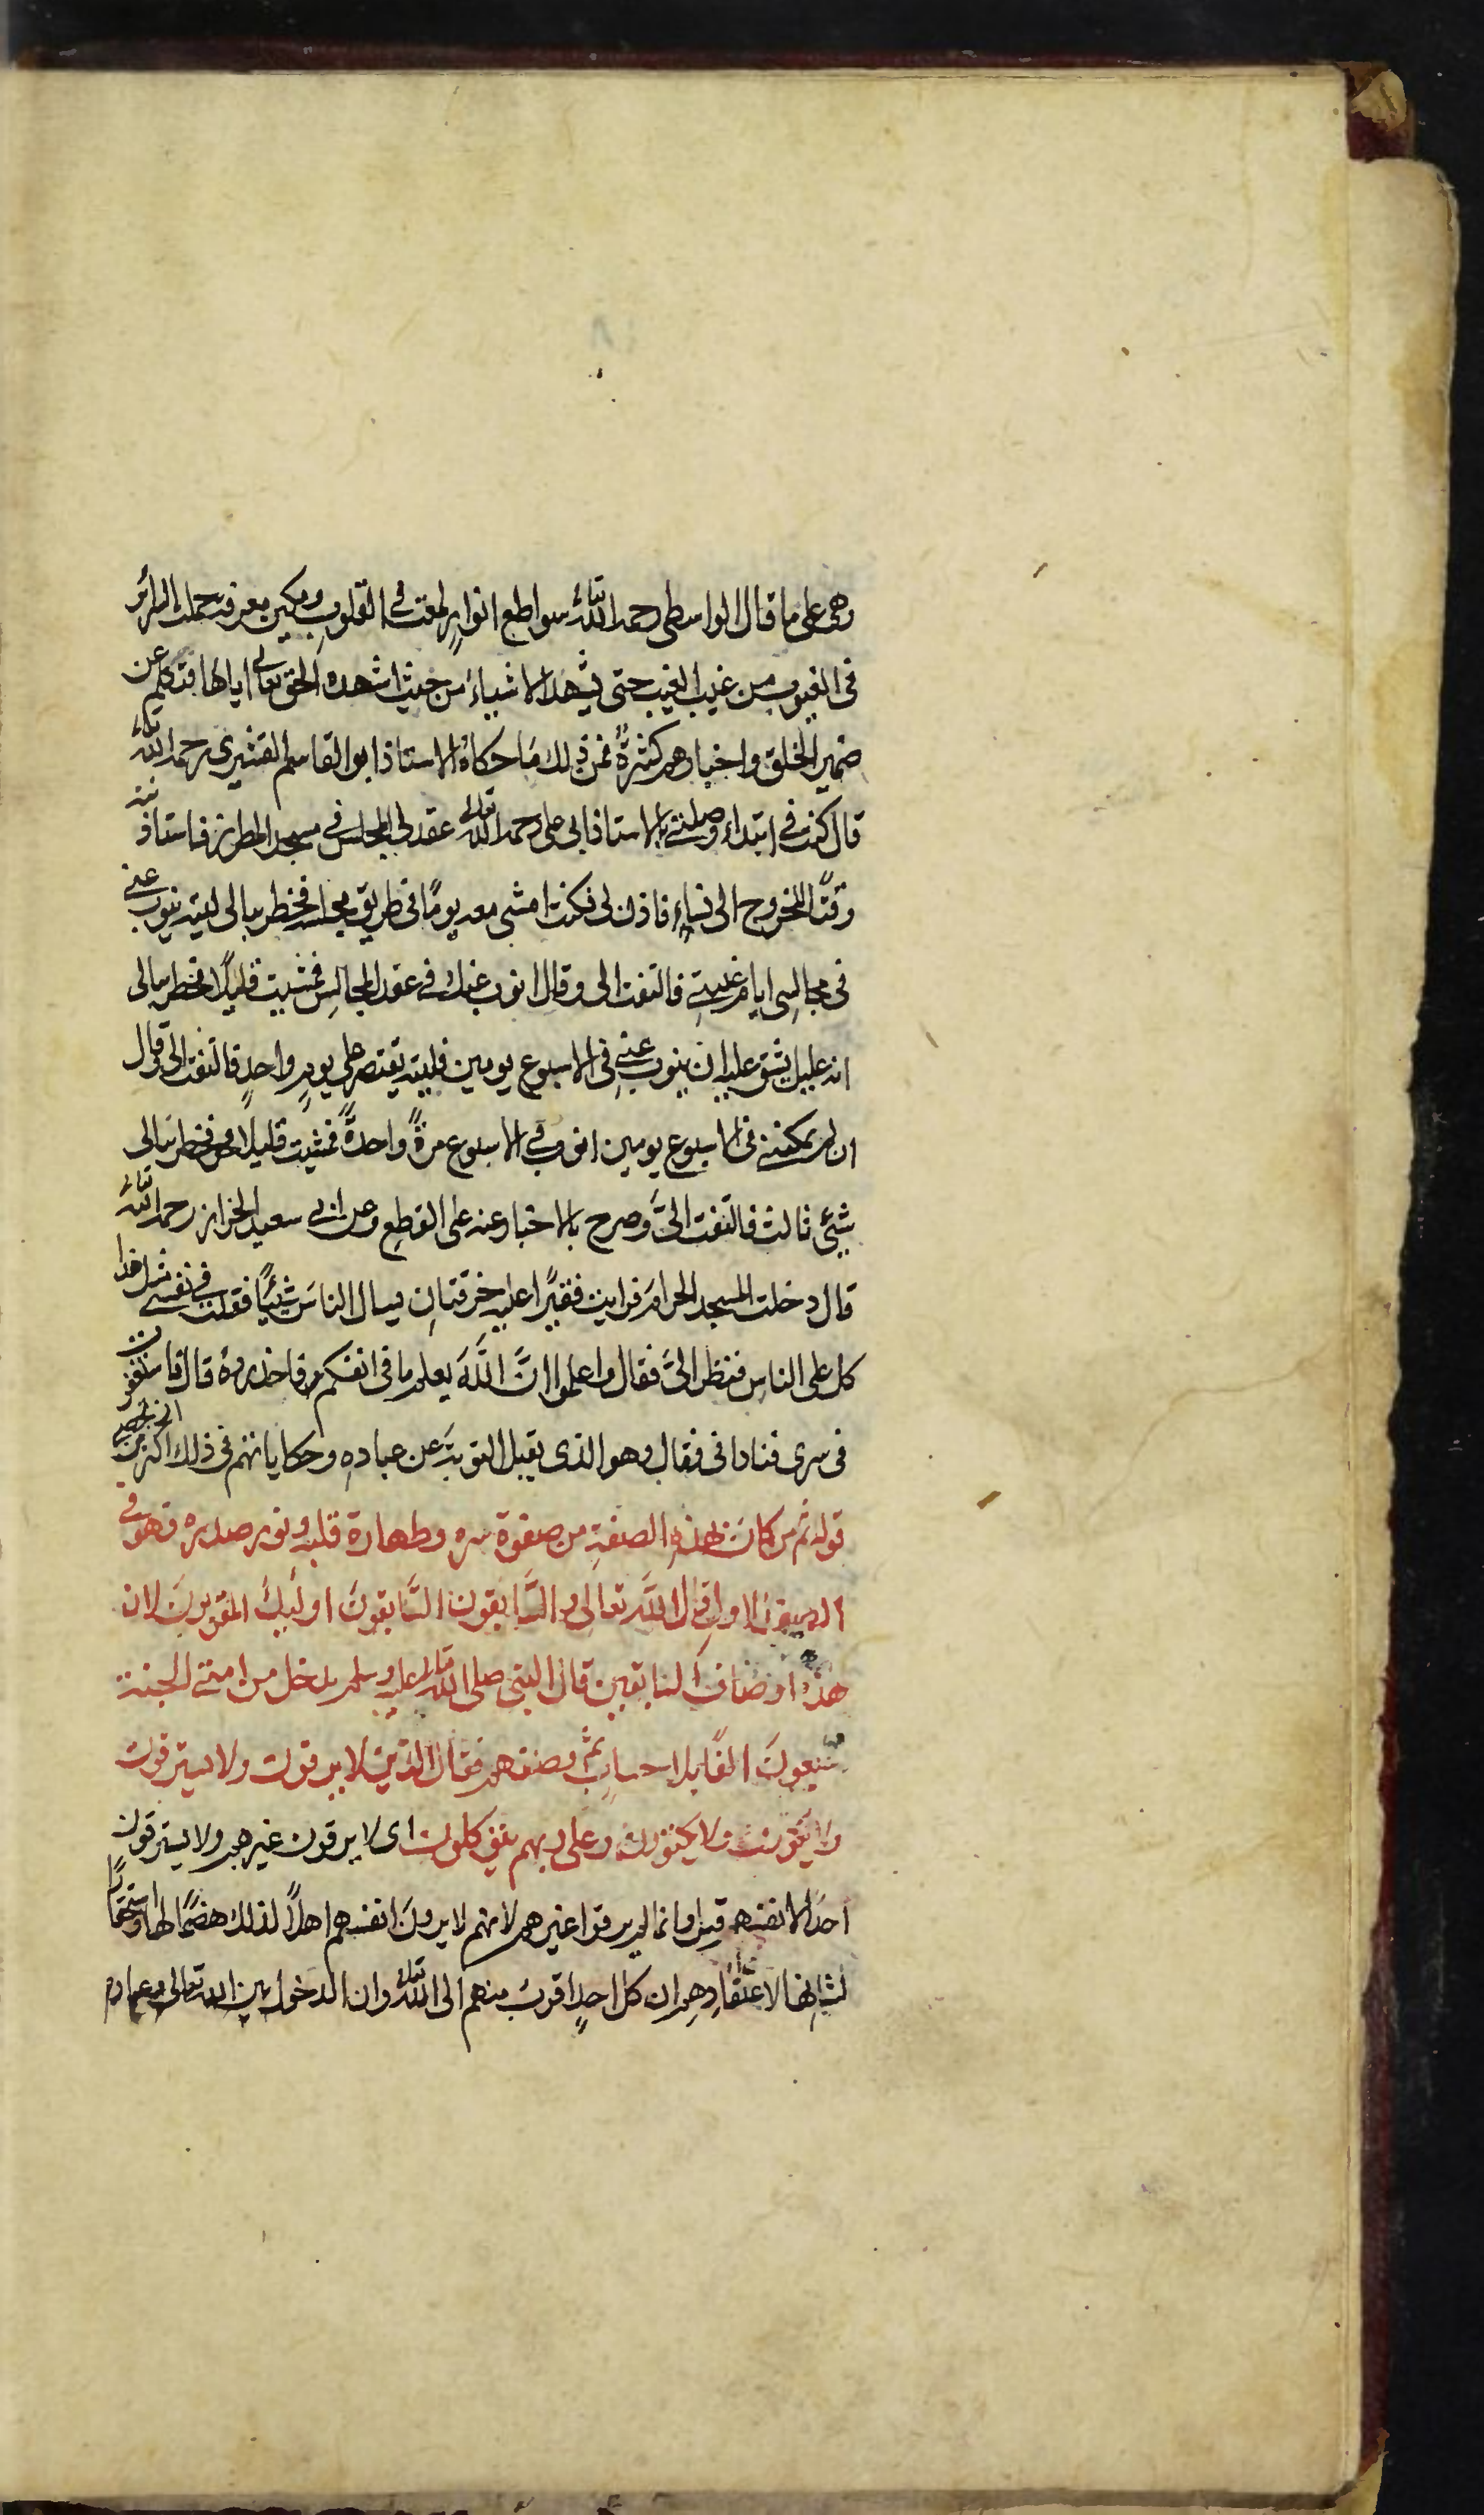 وهى على ما قال الواسطى رحمه الله تعالى سواطع انوارٍ لمعت فى القلوب ومكين معرفت حملت السرائر
فى الغيوب من غيب الغيب حتى يشهد الاشياءَ من حيث اشهده الحق تعالى اياها فتكلم عن
ضمير الخلق واخبارهم كثيرةٌ فمن ذلك مَا حكاهُ الاستاذ ابو القاسم القشيرى رحمه الله تعالى
قال كنت فى ابتداء وصلتى بالاستاذ ابى على رحمه الله تعالى عقد لى المجلس فى مسجد المطرز فاستاذنته
وقتًا للخروج الى نساء فاذن لى فكنت امشى معه يومًا فى طريق مجلسه فخطر ببالى ليته ينوب عنى
فى مجالسى ايام غيبتى فالتفت الى وقال انوب عنك فى عقد المجالس فمشيت قليلًا فخطر ببالى
انه عليل يشق عليه ان ينوب عنى فى الاسبوع يومين فليته يقتصر على يومٍ واحدٍ فالتفت الى وقال
ان لم يمكننى فى الاسبوع يومين انوب فى الاسبوع مرةً واحدةً فمشيت قليلًا فخطر ببالى
شيئ ثالث فالتفت الىَّ وصرح بالاخبار عنه على القطع وعن ابى سعيد الخراز رحمه الله تعالى
قال دخلت المسجد الحرامَ فرايت فقيرًا عليه خرقتانِ يسال الناسَ شيئًا فقلت فى نفسى مثل هذا
كل على الناس فنظر الىَّ فقال واعلموا انَّ اللَّهَ يعلم ما فى انفسكم فاحذروهُ قال فاستغفرت
فى سرى فنادانى فقال وهو الذى يقبل التوبةَ عن عبادهِ وحكاياتهم فى ذلك اكثر من ان تحصى
قوله ثم من كانَ بهذهِ الصفةِ من صفوة سره وطهارة قلبه ونور صدره فهو فى
الصف الاول قال اللَّه تعالى والسَّابقون السَّابقونَ اولئِكَ المقربونَ لان
هذه اوصاف السابقين قال النبى صلى الله تعالى عليه وسلم يدخل من امتى الجنة
سبعونَ الفًا بلا حسابٍ ثم وصفهم فقال الذين لا يرقون ولا يسترقون
ولا يكوون ولا يكتوون وعلى ربهم يتوكلون اى لا يرقون غيرهم ولا يسترقون
احدًا لانفسهم قيل وانما لم يرقوا غيرهم لانهم لا يرونَ انفسهم اهلًا لذلك هضمًا لها واستحقارًا
لشانها لاعتقادهم ان كل احدٍ اقرب منهم الى الله تعالى وان الدخول بين الله تعالى وعباده